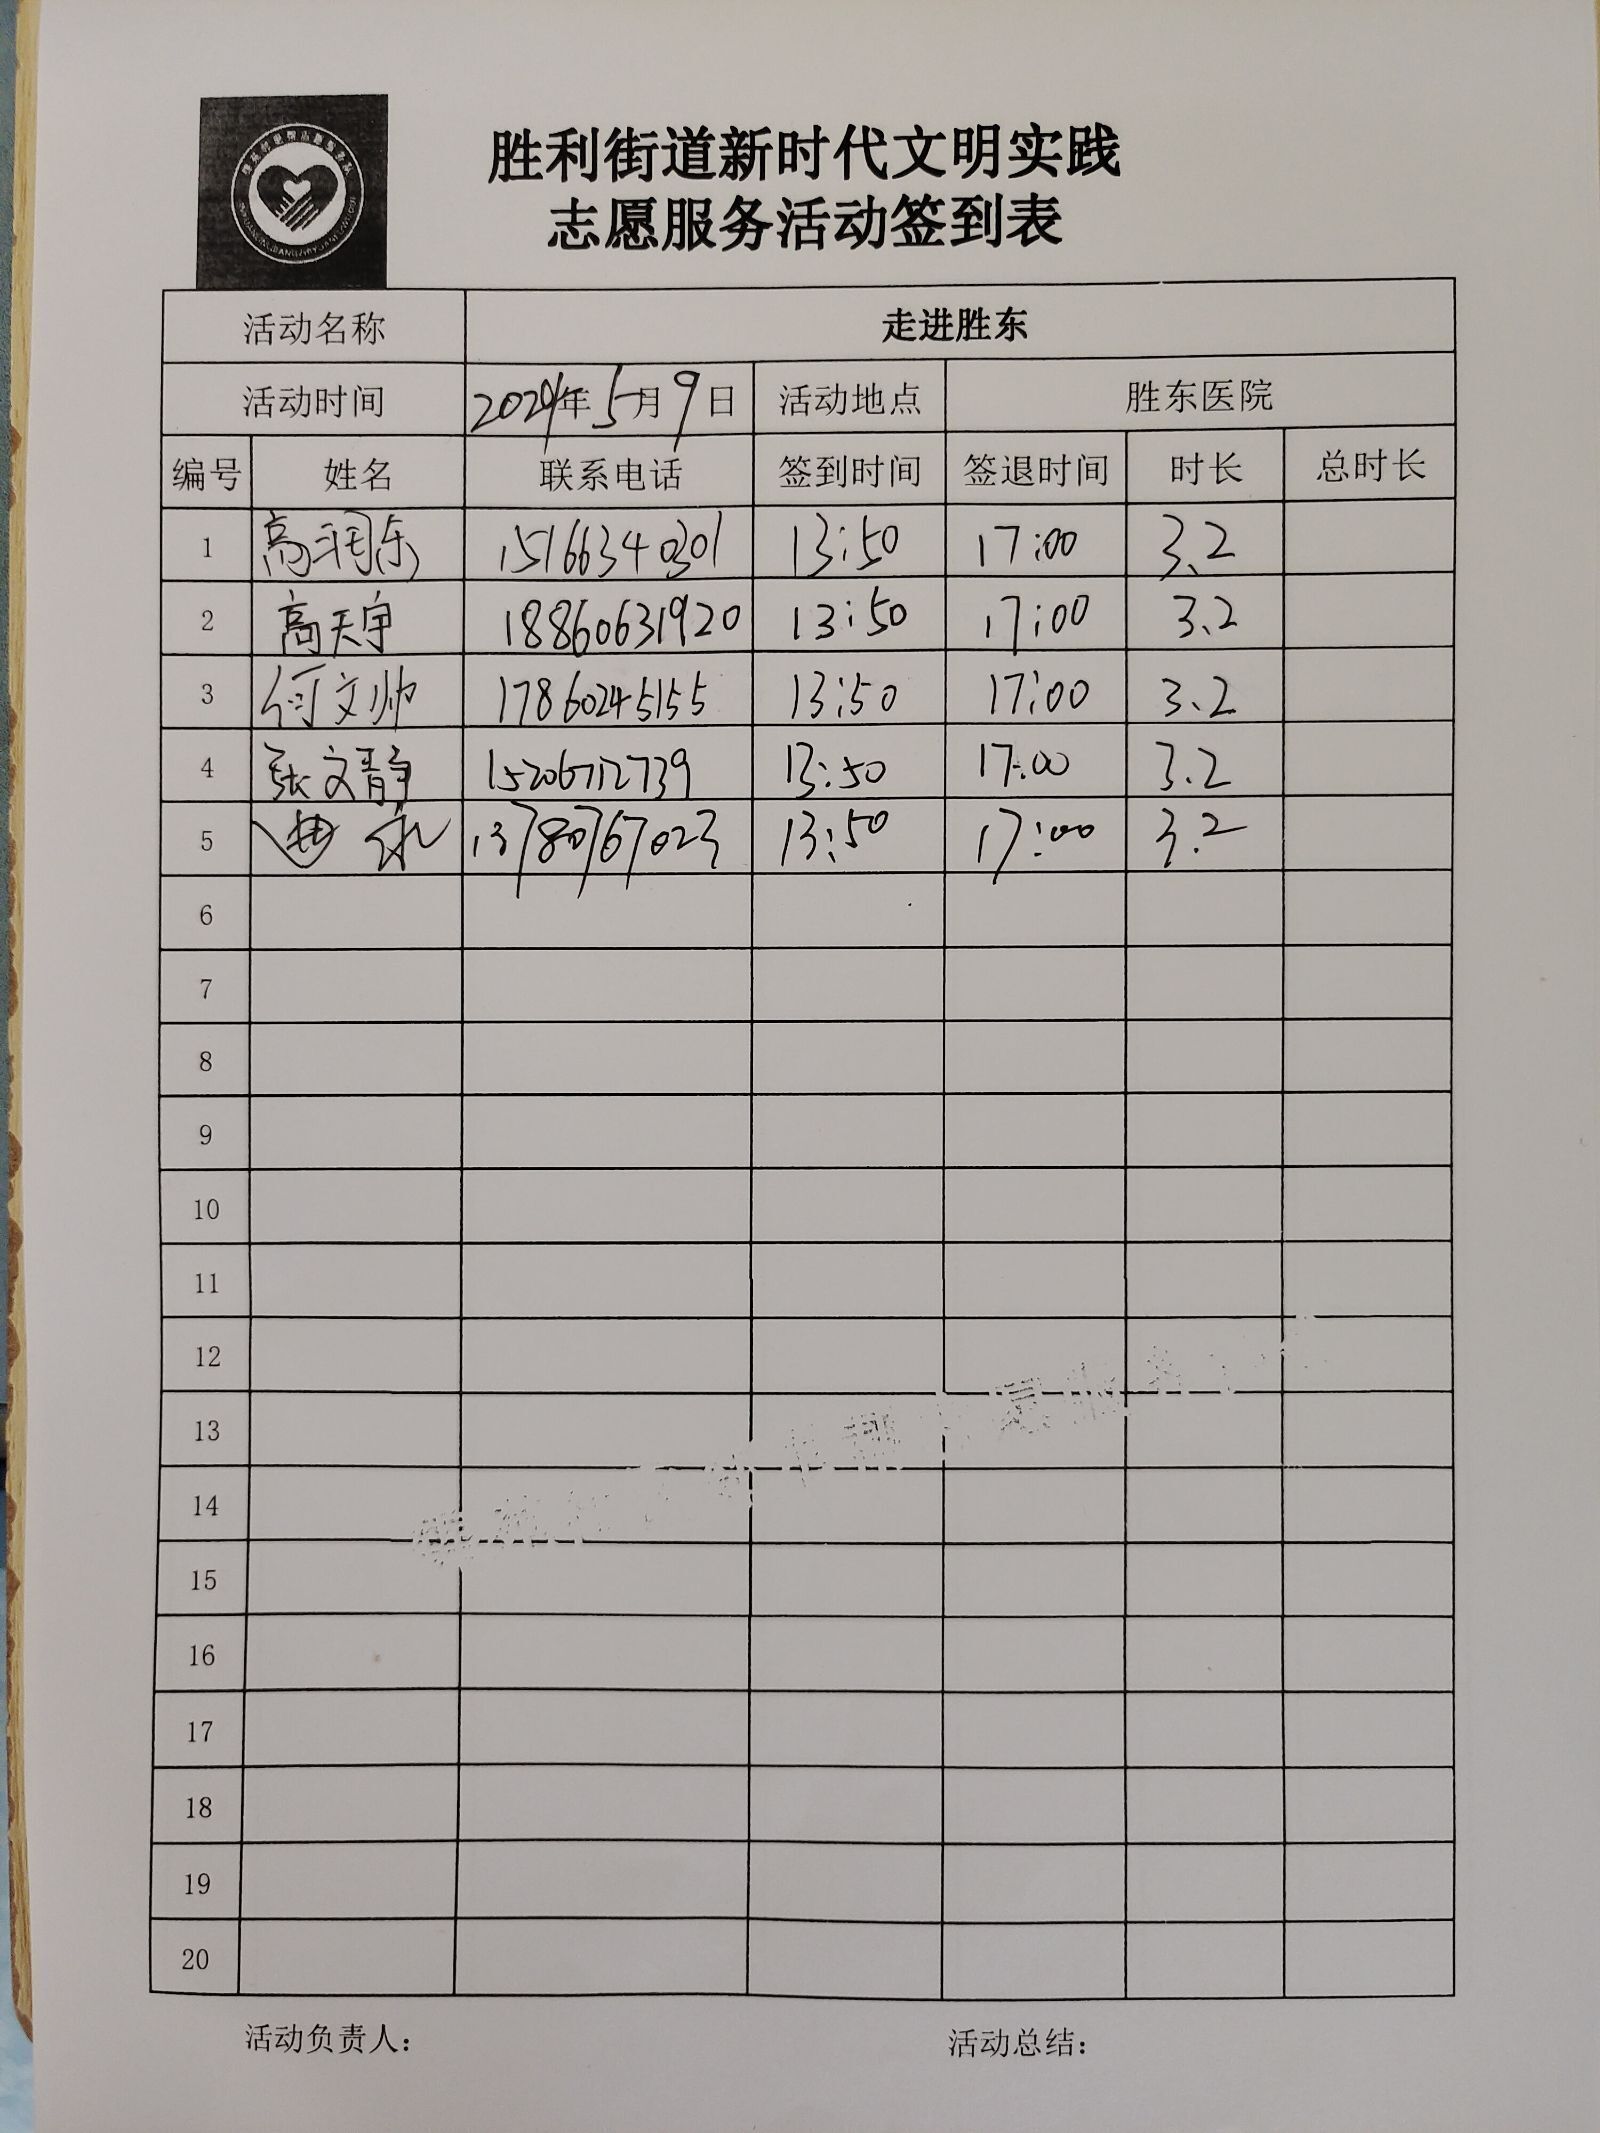 胜利街道新时代文明实践
志愿服务活动签到表
活动名称 走进胜东
活动时间 2024年5月9日 活动地点 胜东医院
编号 姓名 联系电话 签到时间 签退时间 时长 总时长
1 高润东 15166340301 13:50 17:00 3.2
2 高天宇 18860631920 13:50 17:00 3.2
3 何文帅 17860245155 13:50 17:00 3.2
4 张文静 15206712739 13:50 17:00 3.2
5 13780767023 13:50 17:00 3.2
6
7
8
9
10
11
12
13
14
15
16
17
18
19
20
活动负责人: 活动总结: